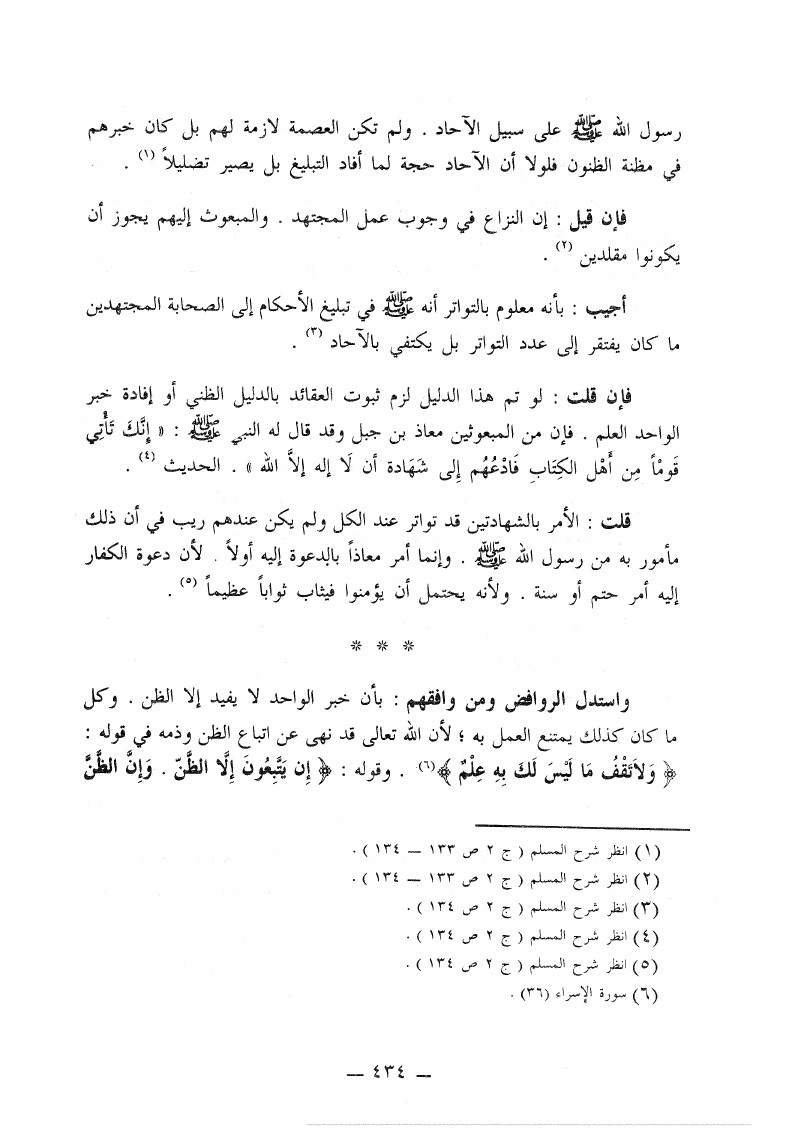 رسول الله ﷺ على سبيل الآحاد . ولم تكن العصمة لازمة لهم بل كان خبرهم
في مظنة الظنون فلولا أن الآحاد حجة لما أفاد التبليغ بل يصير تضليلاً (١) .
فإن قيل : إن النزاع في وجوب عمل المجتهد . والمبعوث إليهم يجوز أن
يكونوا مقلدين (٢) .
أجيب : بأنه معلوم بالتواتر أنه ﷺ في تبليغ الأحكام إلى الصحابة المجتهدين
ما كان يفتقر إلى عدد التواتر بل يكتفي بالآحاد (٣) .
فإن قلت : لو تم هذا الدليل لزم ثبوت العقائد بالدليل الظني أو إفادة خبر
الواحد العلم . فإن من المبعوثين معاذ بن جبل وقد قال له النبي ﷺ : « إِنَّكَ تَأْتِي
قَوْماً مِن أَهْل الكِتَابِ فَادْعُهُم إِلى شَهَادة أن لَا إله إلاَّ الله » . الحديث (٤) .
قلت : الأمر بالشهادتين قد تواتر عند الكل ولم يكن عندهم ريب في أن ذلك
مأمور به من رسول الله ﷺ . وإنما أمر معاذاً بالدعوة إليه أولاً . لأن دعوة الكفار
إليه أمر حتم أو سنة . ولأنه يحتمل أن يؤمنوا فيثاب ثواباً عظيماً (٥) .
* * *
واستدل الروافض ومن وافقهم : بأن خبر الواحد لا يفيد إلا الظن . وكل
ما كان كذلك يمتنع العمل به ؛ لأن الله تعالى قد نهى عن اتباع الظن وذمه في قوله :
﴿ وَلاَتَقْفُ مَا لَيْسَ لَكَ بِهِ عِلْمٌ ﴾(٦) . وقوله : ﴿ إِن يَتَّبِعُونَ إِلَّا الظَّنّ . وَإِنَّ الظَّنَّ
(١) انظر شرح المسلم ( ج ٢ ص ١٣٣ – ١٣٤ ) .
(٢) انظر شرح المسلم ( ج ٢ ص ١٣٣ – ١٣٤ ) .
(٣) انظر شرح المسلم ( ج ٢ ص ١٣٤ ) .
(٤) انظر شرح المسلم ( ج ٢ ص ١٣٤ ) .
(٥) انظر شرح المسلم ( ج ٢ ص ١٣٤ ) .
(٦) سورة الإسراء (٣٦) .
— ٤٣٤ —